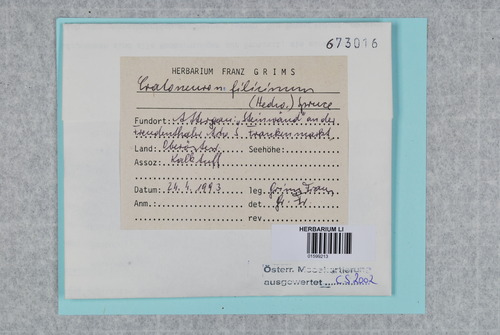 673016
HERBARIUM FRANZ GRIMS
Cratoneuron filicinum
(Hedw.) Spruce
Fundort: Attergau: "Steinwand" an der
S Frankenmarkt
Land: Oberösterr. Seehöhe:
Assoz: Kalktuff
Datum: 24.4.1993 leg. Grims Franz
Anm.: det.
rev.
HERBARIUM LI
01599213
Österr. Mooskartierung
ausgewertet CS 2002